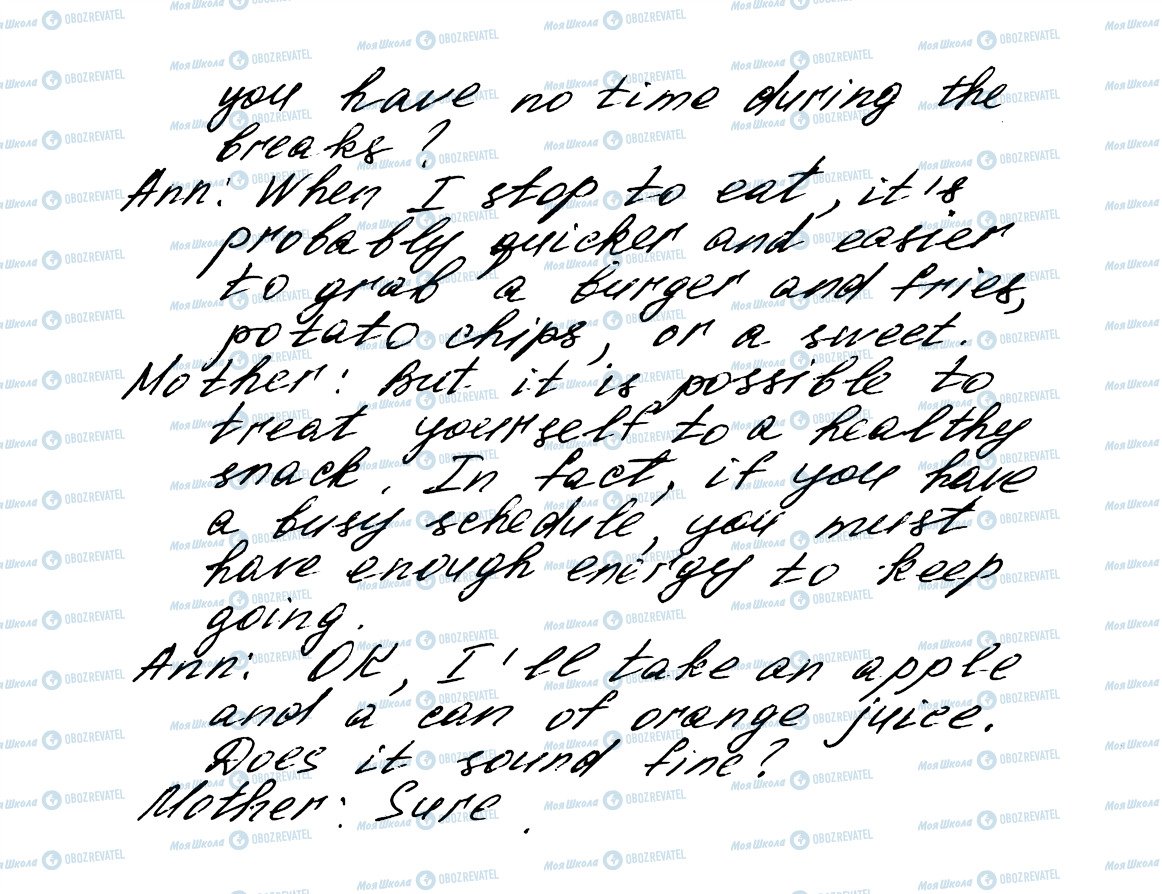 you have no time during the
breaks?
Ann: When I stop to eat, it's
probably quicker and easier
to grab a burger and fries,
potato chips, or a sweet.
Mother: But it is possible to
treat yourself to a healthy
snack. In fact, if you have
a busy schedule, you must
have enough energy to keep
going.
Ann: OK, I'll take an apple
and a can of orange juice.
Does it sound fine?
Mother: Sure.
Моя Школа OBOZREVATEL